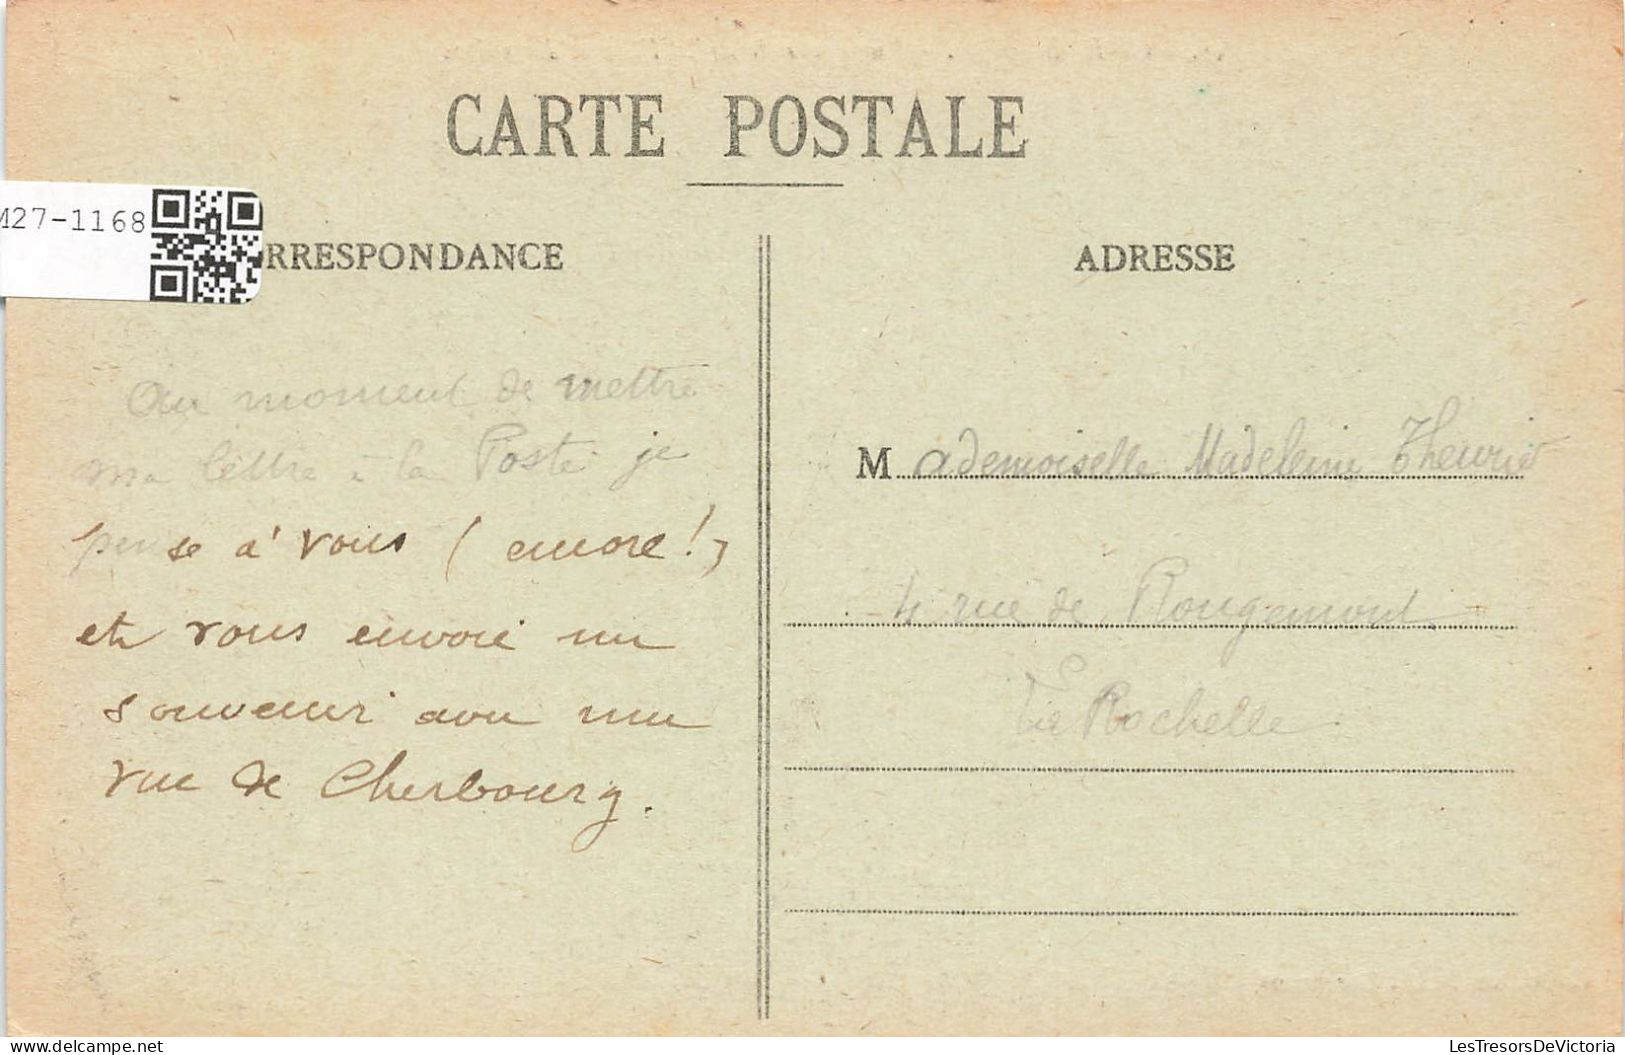 CARTE POSTALE
M27-1168
RRESPONDANCE
Au moment de mettre
ma lettre à la Poste je
pense à vous (encore!)
et vous envoie un
souvenir avec une
vue de Cherbourg.
ADRESSE
Mademoiselle Madeleine Theurier
4 rue de Rougemont
La Rochelle
LesTresorsDeVictoria